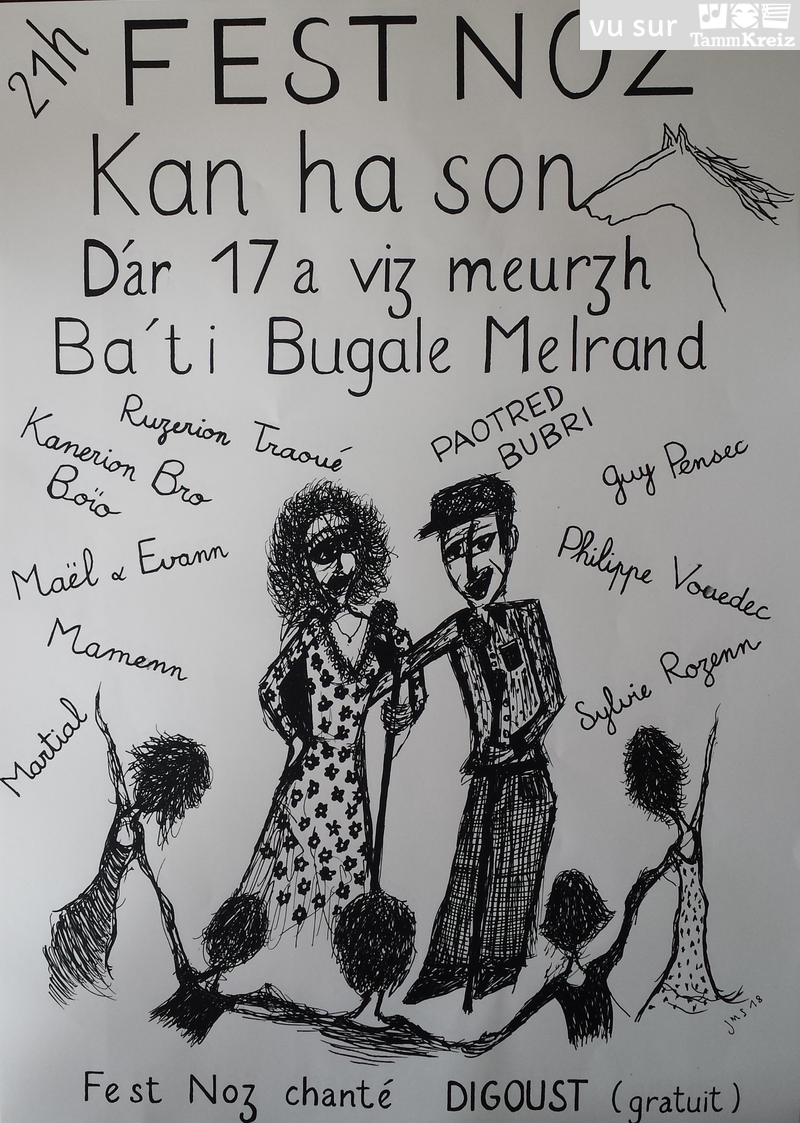 vu sur
TammKreiz
21h
FEST NOZ
Kan ha son
D'ar 17 a viz meurzh
Ba'ti Bugale Melrand
Ruzerion Traoué
PAOTRED
BUBRI
Kanerion Bro
Boïo
Guy Pensec
Maël & Evann
Philippe Vouedec
Mamenn
Sylvie Rozenn
Martial
JMS 18
Fest Noz chanté DIGOUST (gratuit)